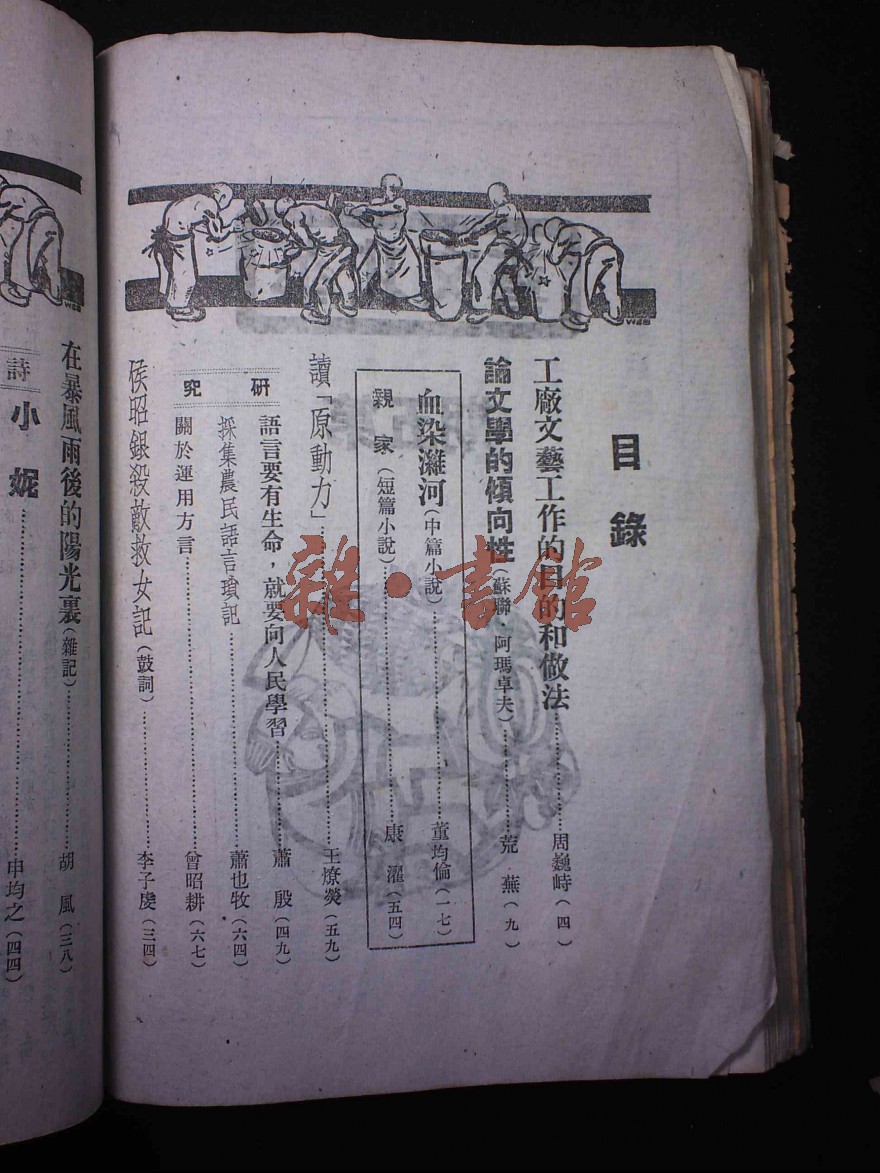 目錄
工廠文藝工作的目的和做法……周巍峙（四）
論文學的傾向性（蘇聯、阿瑪卓夫）……荒蕪（九）
血染濰河（中篇小說）……董均倫（一七）
親家（短篇小說）……康濯（五四）
讀「原動力」……王燎熒（五九）
研究
語言要有生命，就要向人民學習……蕭殷（四九）
採集農民語言瑣記……蕭也牧（六四）
關於運用方言……曾昭耕（六七）
侯昭銀殺敵救女記（鼓詞）……李子虔（三四）
在暴風雨後的陽光裏（雜記）……胡風（三八）
詩
小妮……申均之（四四）
雜·書館